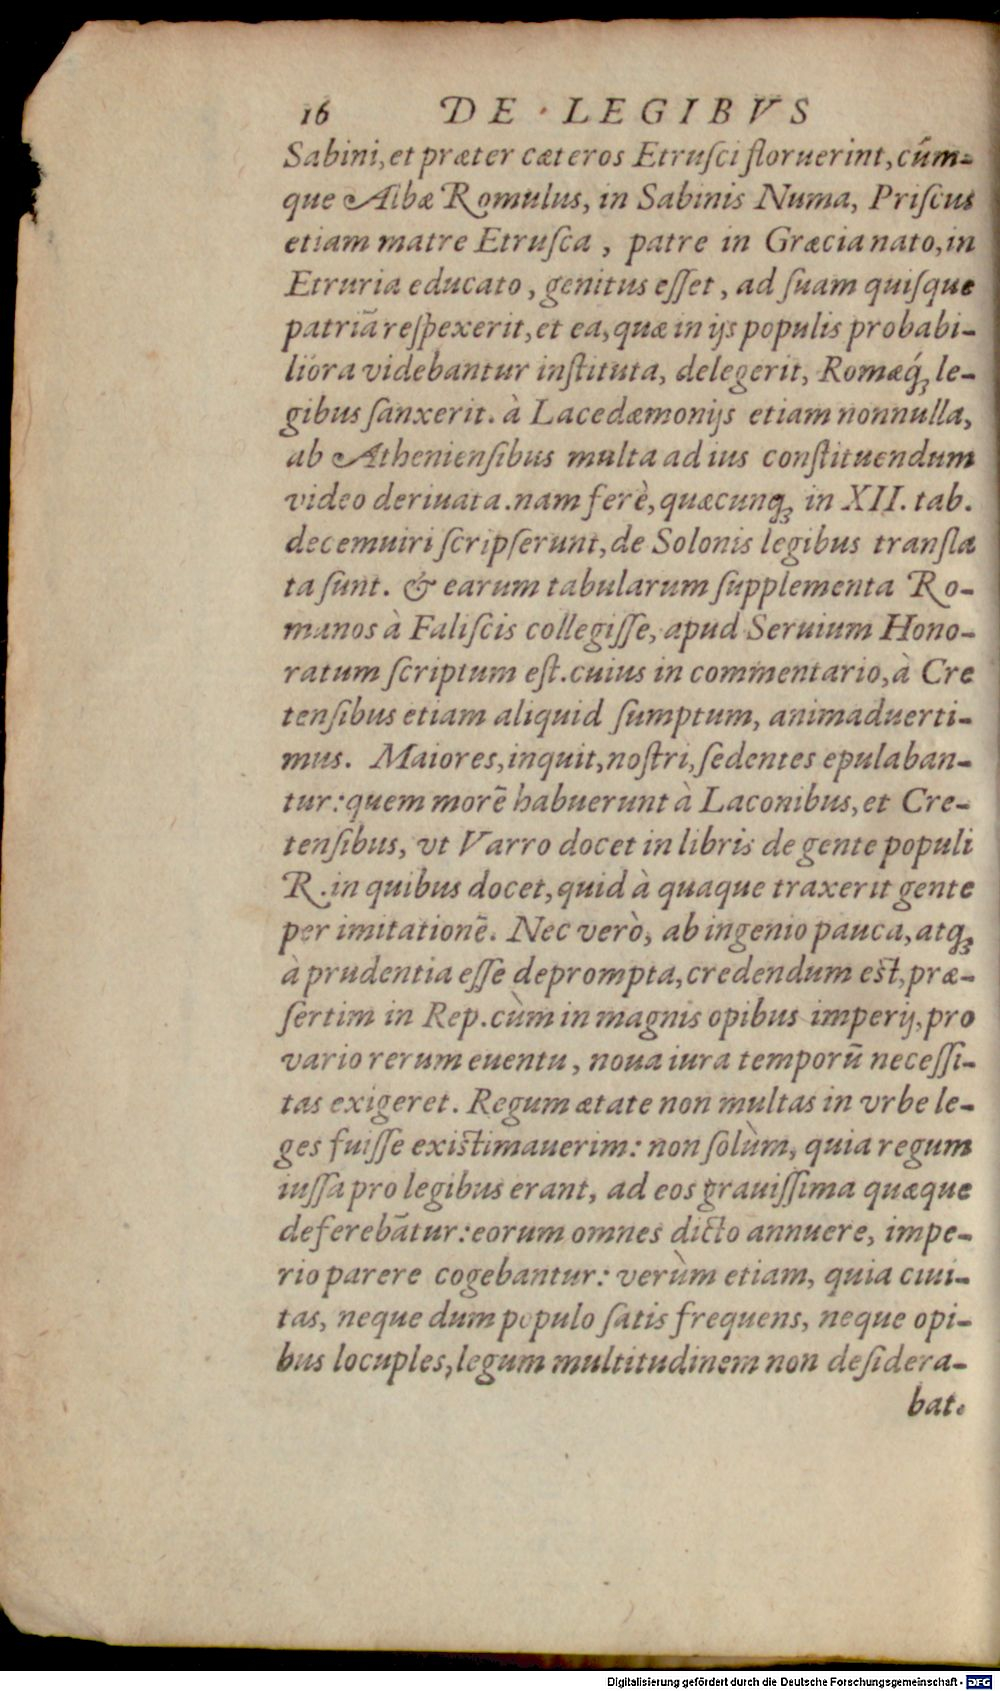 16 DE · LEGIBVS
Sabini, et præter cæteros Etrusci floruerint, cúm-
que Albæ Romulus, in Sabinis Numa, Priscus
etiam matre Etrusca, patre in Græcia nato, in
Etruria educato, genitus esset, ad suam quisque
patriā respexerit, et ea, quæ in ijs populis probabi-
liora videbantur instituta, delegerit, Romæq́ꝫ le-
gibus sanxerit. à Lacedæmonijs etiam nonnulla,
ab Atheniensibus multa ad ius constituendum
video deriuata. nam ferè, quæcunqꝫ in XII. tab.
decemuiri scripserunt, de Solonis legibus transla
ta sunt. & earum tabularum supplementa Ro-
manos à Faliscis collegisse, apud Seruium Hono-
ratum scriptum est. cuius in commentario, à Cre
tensibus etiam aliquid sumptum, animaduerti-
mus. Maiores, inquit, nostri, sedentes epulaban-
tur: quem morē habuerunt à Laconibus, et Cre-
tensibus, vt Varro docet in libris de gente populi
R. in quibus docet, quid à quaque traxerit gente
per imitationē. Nec verò, ab ingenio pauca, atqꝫ
à prudentia esse deprompta, credendum est, præ-
sertim in Rep. cùm in magnis opibus imperij, pro
vario rerum euentu, noua iura temporū necessi-
tas exigeret. Regum ætate non multas in vrbe le-
ges fuisse existimauerim: non solùm, quia regum
iussa pro legibus erant, ad eos grauissima quæque
deferebātur: eorum omnes dicto annuere, impe-
rio parere cogebantur: verùm etiam, quia ciui-
tas, neque dum populo satis frequens, neque opi-
bus locuples, legum multitudinem non desidera-
bat.
Digitalisierung gefördert durch die Deutsche Forschungsgemeinschaft - DFG